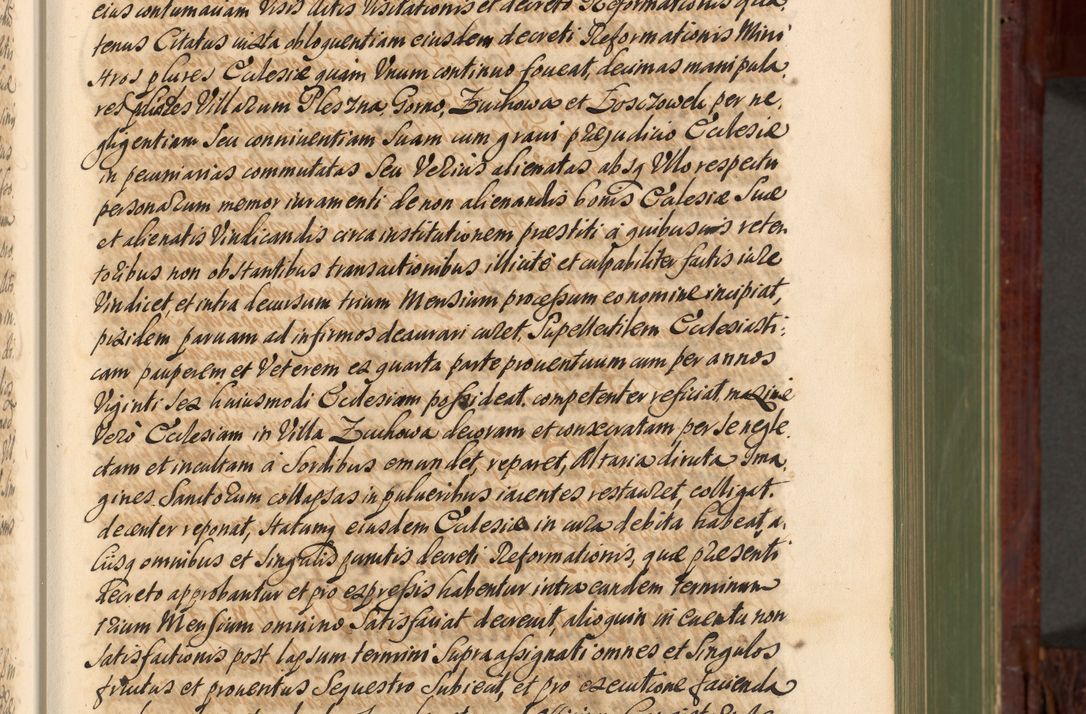 eius contumaciam Visis Actis Visitationis et decreto Reformationis qua,
tenus Citatus iuxta obloquentiam eiusdem decreti Reformationis Mini
stros plures Eclesiæ quàm Vnum continuo foueat, decimas manipula
res Villarum Pleszna, Gorno, Zuchowa et Loszowek per ne,
gligentiam seu conniuentiam Suam cum graui præjudicio Eclesiæ
in pecuniarias commutatas Seu Verius alienatas absq Vllo respectu
personarum memor iuramenti de non alienandis bonis Eclesiæ Suæ
et alienatis Vindicandis circa institutionem præstiti à quibusuis reten
toribus non obstantibus transactionibus illicitè et culpabiliter factis iure
Vindicet, et intra decursum trium Mensium processum eo nomine incipiat,
pixidem paruam ad infirmos deaurari curet, Supellectilem Eclesiasti:
cam pauperem et Veterem ex quarta parte prouentuum cum per annos
Viginti sex huiusmodi Eclesiam possideat. competenter reficiat, maximè
Verò Eclesiam in Villa Zuchowa decoram et consecratam per se negle,
ctam et incultam à Sordibus emundet, reparet, Altaria diruta Ima,
gines Sanctorum collapsas in pulueribus iacentes restauret, colligat.
decenter reponat, statumq eiusdem Eclesiæ in cura debita habeat, a,
liisq omnibus et Singulis punctis decreti Reformationis, quæ præsenti
Decreto approbantur et pro expressis habentur intra eundem terminum
trium Mensium omnino Satisfaciat decreuit, alioquin in euentu non
satisfactionis post lapsum termini Supra assignati omnes et Singulos
fructus et prouentus Sequestro Subiecit, et pro executione facienda